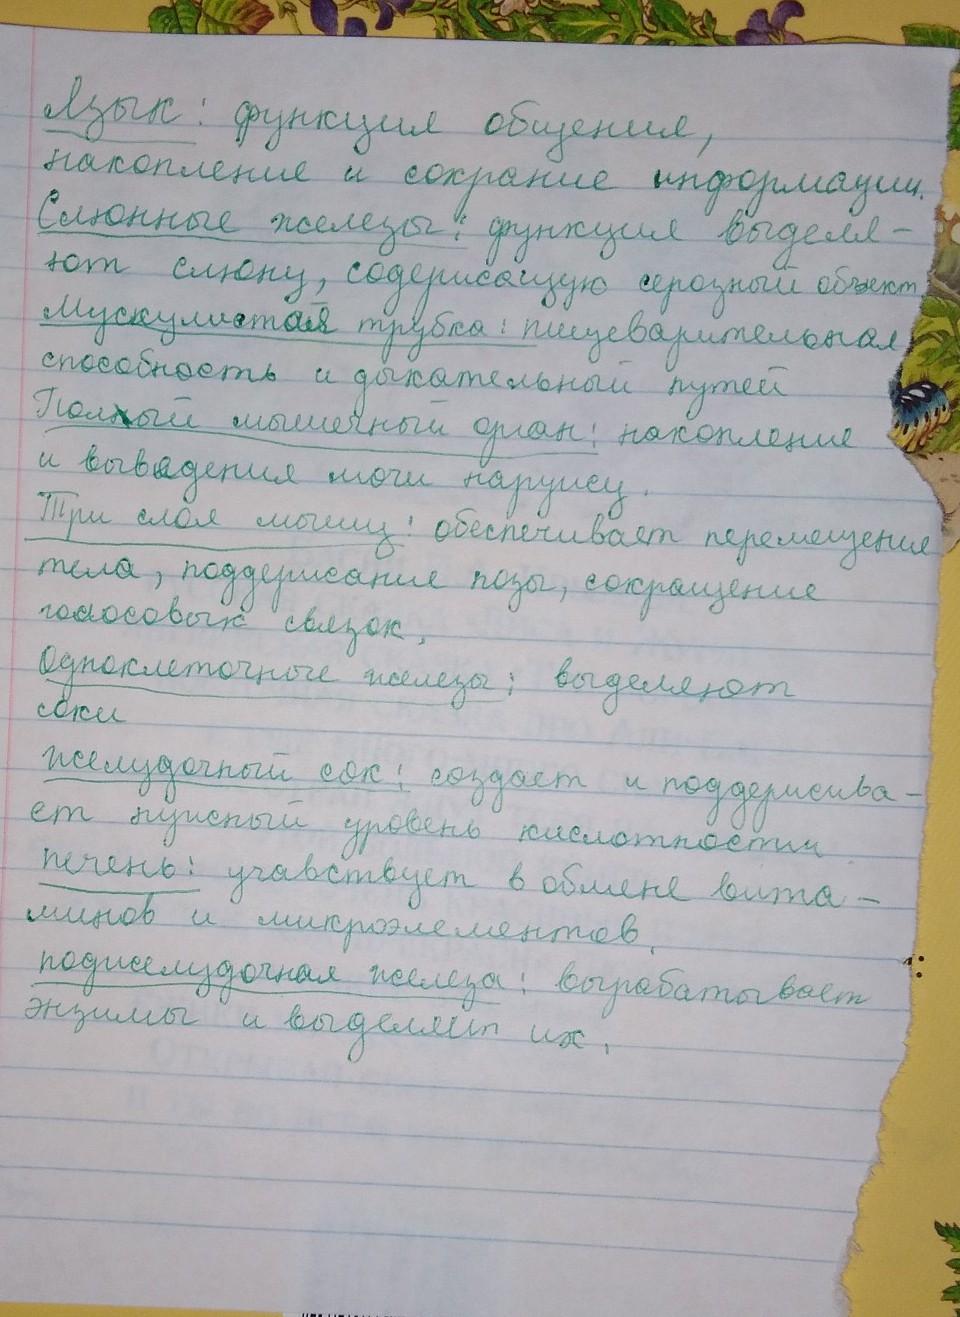 Язык: функция общения,
накопление и сохрание информации.
Слюнные железы: функция выделя-
ют слюну, содержащую серозный объект
Мускулистая трубка: пищеварительная
способность и дыхательный путей
Полный мышечный орган: накопление
и выведения мочи наружу.
Три слоя мышц: обеспечивает перемещение
тела, поддержание позы, сокращение
голосовых связок.
Одноклеточные железы: выделяют
соки
желудочный сок: создает и поддержива-
ет нужный уровень кислотности
печень: учавствует в обмене вита-
минов и микроэлементов.
поджелудочная железа: вырабатывает
энзимы и выделяет их.